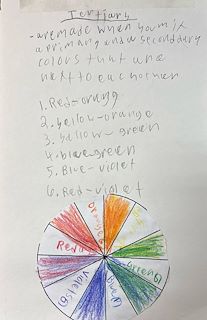 Tertiary
- are made when you mix
a primary and a secondary
colors that are
next to each other
1. Red-orang
2. yellow-orange
3. yellow-green
4. blue-green
5. Blue-violet
6. Red-violet
orange
Red
Green
Violet